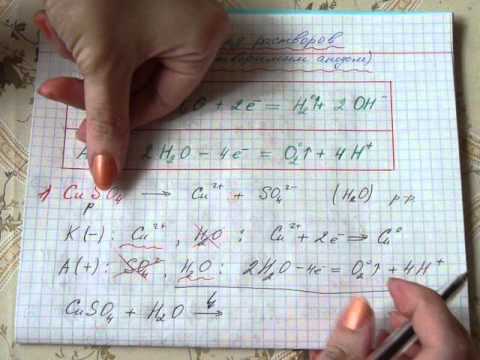 растворов
растворимым анодом)
O + 2e⁻ = H₂⁰↑ + 2OH⁻
A 2H₂O − 4e⁻ = O₂⁰↑ + 4H⁺
1) CuSO₄ → Cu²⁺ + SO₄²⁻ (H₂O) р-р
р
K(−): Cu²⁺, H₂O : Cu²⁺ + 2e⁻ ⇒ Cu⁰
A(+): SO₄²⁻, H₂O : 2H₂O − 4e⁻ = O₂⁰↑ + 4H⁺
CuSO₄ + H₂O →